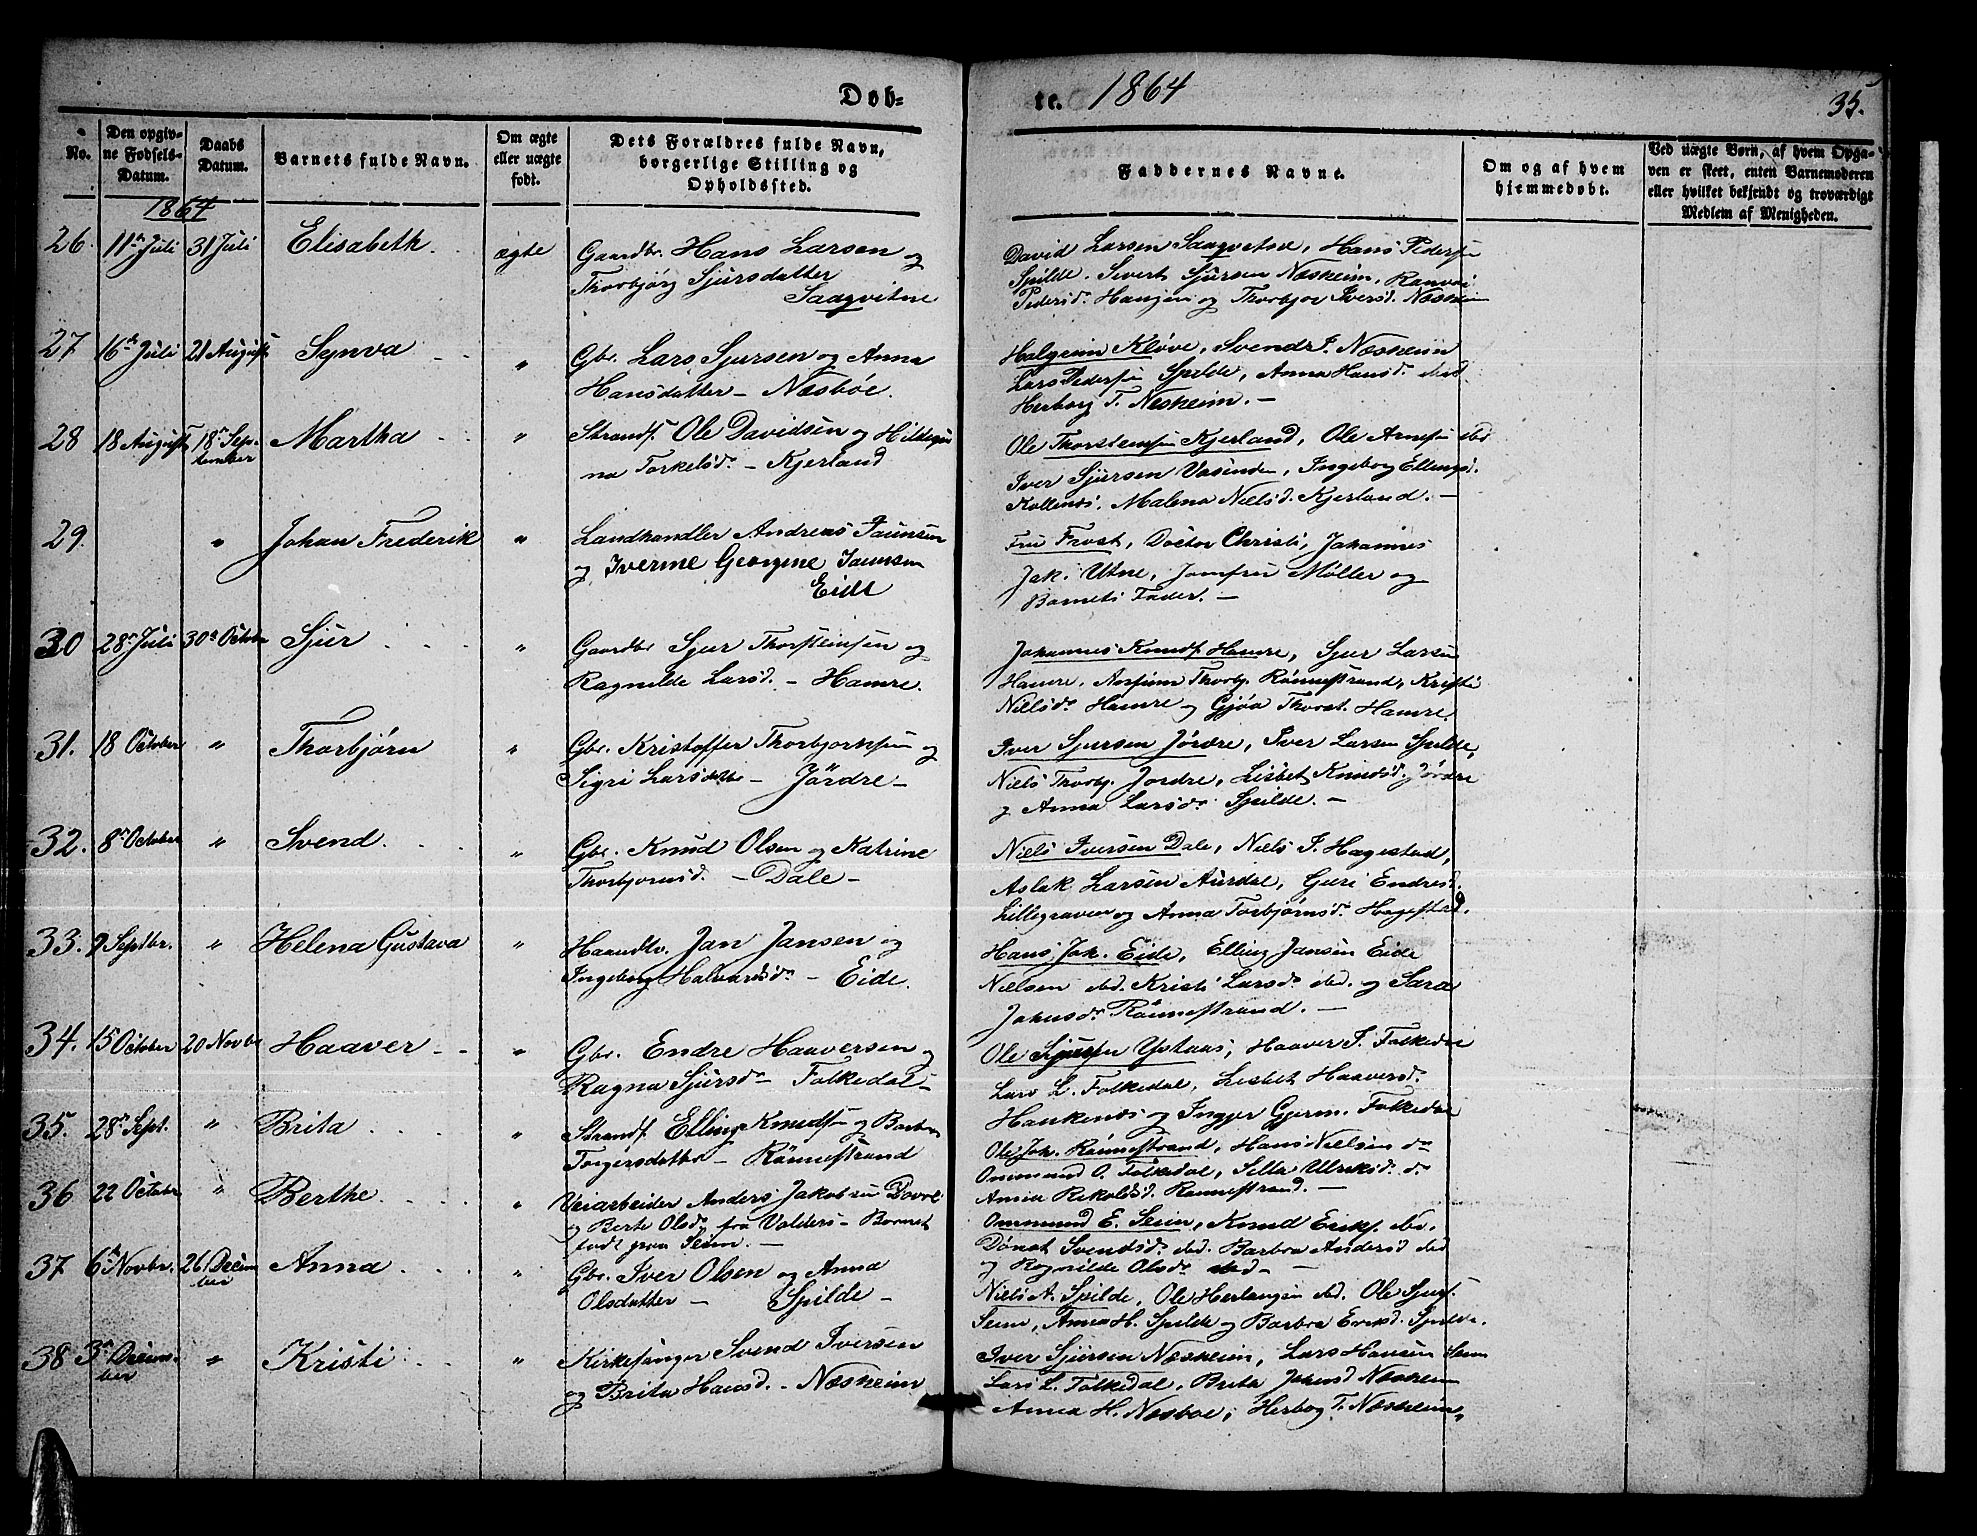 Døb-
te. 1864
35.
No.
Den opgiv-
ne Fødsels-
Datum.
Daabs
Datum.
Barnets fulde Navn.
Om ægte
eller uægte
født.
Dets Forældres fulde Navn,
borgerlige Stilling og
Opholdssted.
Faddernes Navne.
Om og af hvem
hjemmedøbt.
Ved uægte Børn, af hvem Opga-
ven er skeet, enten Barnemoderen
eller hvilket bekjendt og troværdigt
Medlem af Menigheden.
1864
26. 11te Juli 31 Juli Elisabeth. ægte Gaardbr. Hans Larsen og
Thorbjørg Sjursdatter
Saaqvitne
David Larsen Saaqvitne, Hans Pedersen
Spilde. Sivert Sjursen Næsheim, Ranvei
Pedersd. Haugen og Thorbjor Iversd. Næsheim
27 16de Juli 21 August Synva " Gbr. Lars Sjursen og Anna
Hansdatter - Næsbøe.
Halgeim Kløve, Svend I. Næsheim
Lars Pedersen Spilde, Anna Hansd. ibid
Herborg T. Næsheim. -
28 18 August 18de Sep-
tember Martha " Strandf. Ole Davidsen og Hildegun
na Torkelsd. - Kjerland
Ole Thorstensen Kjerland, Ole Arnesen ibd
Iver Sjursen Vasenden, Ingeborg Ellingsd.
Kollenes, Malena Nielsd. Kjerland. -
29. " Johan Frederik " Landhandler Andreas Jaunsen
og Iverine Georgine Jaunsen
Eide
Fru Frost, Doctor Christi, Johannes
Jak. Utne, Jomfru Møller og
Barnets Fader. -
30 28de Juli 30te October Sjur " Gaardbr Sjur Thorsteinsen og
Ragnilde Larsd. - Hamre.
Johannes Knudsf. Hamre, Sjur Larsen
Hamre, Thorbj. Rønnestrand, Kristi
Nielsdr. Hamre og Gjøa Thorst. Hamre.
31. 18 October " Thorbjørn " Gbr. Kristoffer Thorbjørnsen og
Sigri Larsdatter - Jördre -
Iver Sjursen Jørdre, Iver Larsen Spilde,
Niels Thorbj. Jordre, Lisbet Knudsd. Jørdre
og Anna Larsdr. Spilde. -
32. 8de October " Svend. " Gbr. Knud Olsen og Katrine
Thorbjørnsd. - Dale -
Niels Iversen Dale, Niels I. Hagestad,
Aslak Larsen Aurdal, Guri Endresd.
Lillegraven og Anna Torbjørnsd. Hagestad.
33. 9 Septbr. " Helena Gustava " Haandtv. Jan Jansen og
Ingeborg Halvardsdr. - Eide.
Hans Joh. Eide, Elling Jansen Eide
Nielsen ibd. Kristi Larsdr. ibd. og Sara
Johnsdr. Rønnestrand. -
34. 15 October 20 Novbr Haaver " Gbr. Endre Haaversen og
Ragna Sjursdr - Folkedal -
Ole Sjursen Ystaas, Haaver I. Folkedal
Lars L. Folkedal, Lisbet Haaversd.
Haukenæs og Inger Gjerm. Folkedal
35. 28de Sept. " Brita " Strandf. Elling Knudsen og Barbra
Torgersdatter - Rønnestrand
Ole Joh. Rønnestrand, Hans Nielsen do
Ommund O. Folkedal, Silla Ulriksd. do
Anna Rikoldsd. Rønnestrand. -
36 22 October " Berthe " Veiarbeider Anders Jakobsen Dovre
og Berte Olsdr fra Valders - Barnet
født paa Seim. -
Ommund E. Seim, Knud Eriksf. ibd.
Dønat Svendsdr. ibd. Barbra Andersd ibd
og Ragnilde Olsdr ibd -
37 6te Novbr. 26 Decem-
ber Anna " Gbr. Iver Olsen og Anna
Olsdatter - Spilde -
Niels A. Spilde, Ole Herlaugsen ibd. Ole Sjurs.
Seim, Anna H. Spilde og Barbra Eriksd. Spilde.
38 3de Decem-
ber " Kristi " Kirkesanger Svend Iversen
og Brita Hansd. - Næsheim
Iver Sjursen Næsheim, Lars Hansen Seim
Lars L. Folkedal, Brita Johnsd Næsheim
Anna H. Næsboe, Herborg T. Næsheim.